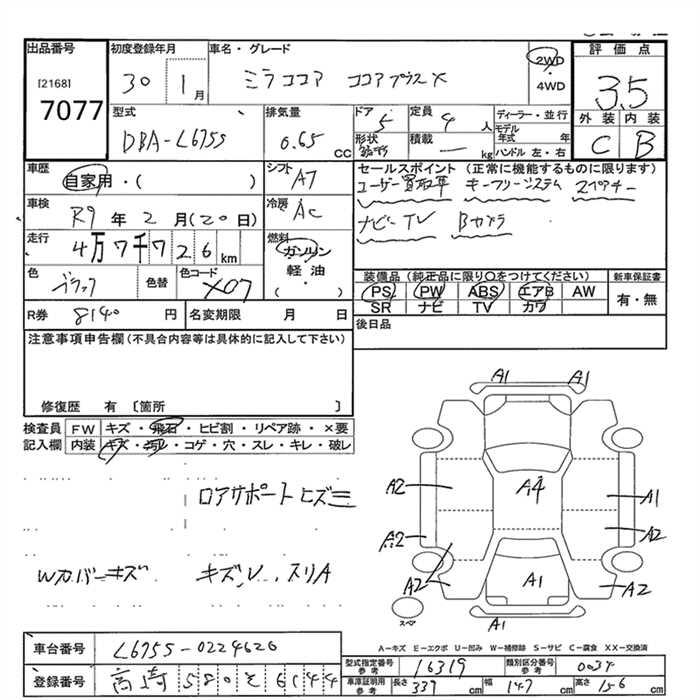 出品番号 初度登録年月 車名・グレード 評価点
[2168] 7077
30 1月 ミラココア ココアプラスX 2WD・4WD 3.5
外装 内装
C B
型式 排気量 ドア 定員 ディーラー・並行
DBA-L675S 0.65 CC 5 4人
モデル年式 年
形状 積載 ー kg ハンドル 左・右
車歴 シフト セールスポイント (正常に機能するものに限ります)
自家用・( ) AT ユーザー買取車 キーフリーシステム スペアキー
車検 冷房
R9年2月(20日) AC ナビーTV Bカメラ
走行 燃料
4万7千726km ガソリン 軽油 ( ・ )
色 色替 色コード 装備品(純正品に限り○をつけてください) 新車保証書
ブラック X07 PS PW ABS エアB AW 有・無
SR ナビ TV カワ
R券 8140円 名変期限 月 日 後日品
注意事項申告欄(不具合内容等は具体的に記入して下さい)
修復歴 有 〔箇所 〕
検査員 FW キズ・飛石・ヒビ割・リペア跡・×要
記入欄 内装 キズ・汚れ・コゲ・穴・スレ・キレ・破レ
ロアサポートヒズミ
Wカバーキズ キズ、U、スリA
A1 A1
A2 A4 A1
A2 A2
A2 A1 A2
スペア A1
A-キズ E-エクボ U-凹み W-補修跡 S-サビ C-腐食 XX-交換済
車台番号 L675S-0224626
型式指定番号 参考 16319 類別区分番号 参考 0034
登録番号 高崎580そ6144
車庫証明用 参考 長さ 339 cm 幅 147 cm 高さ 156 cm